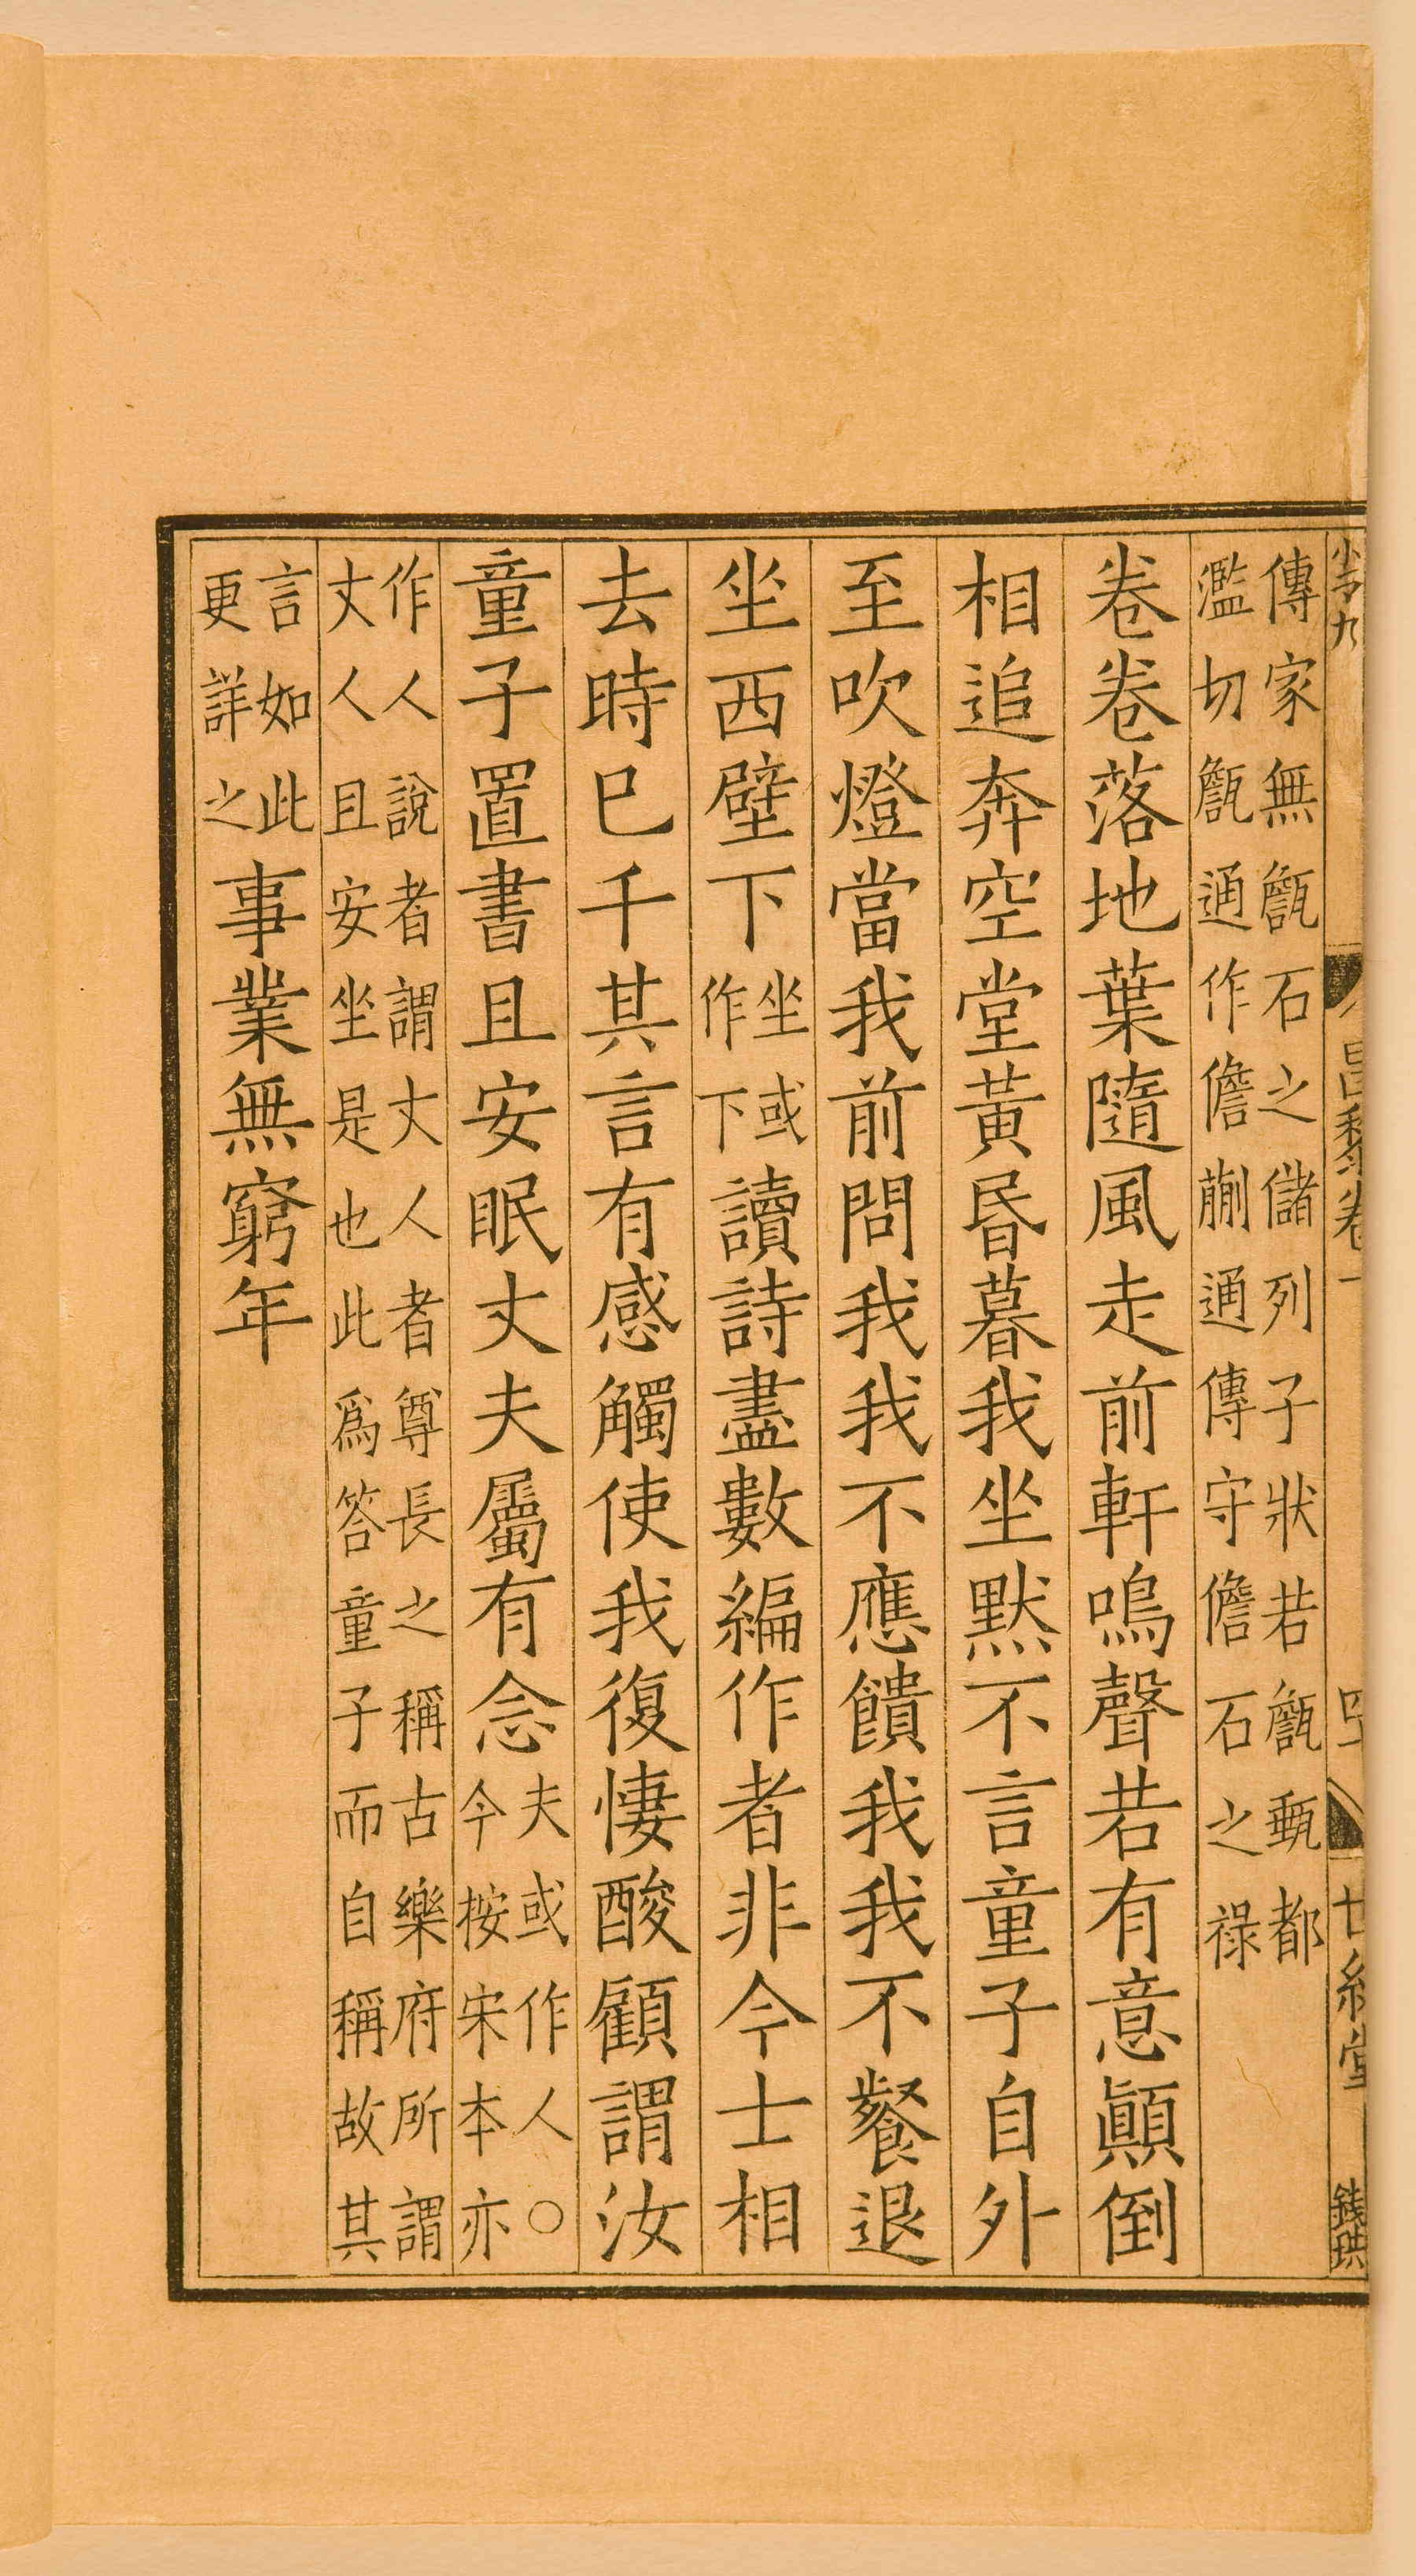 傳家無甔石之儲列子狀若甔甄都
濫切甔通作儋蒯通傳守儋石之祿
卷卷落地葉隨風走前軒鳴聲若有意顚倒
相追奔空堂黃昏暮我坐默不言童子自外
至吹燈當我前問我我不應饋我我不餐退
坐西壁下
坐或
作下
讀詩盡數編作者非今士相
去時已千其言有感觸使我復悽酸顧謂汝
童子置書且安眠丈夫屬有念
夫或作人○
今按宋本亦
作人說者謂丈人者尊長之稱古樂府所謂
丈人且安坐是也此爲答童子而自稱故其
言如此
更詳之
事業無窮年